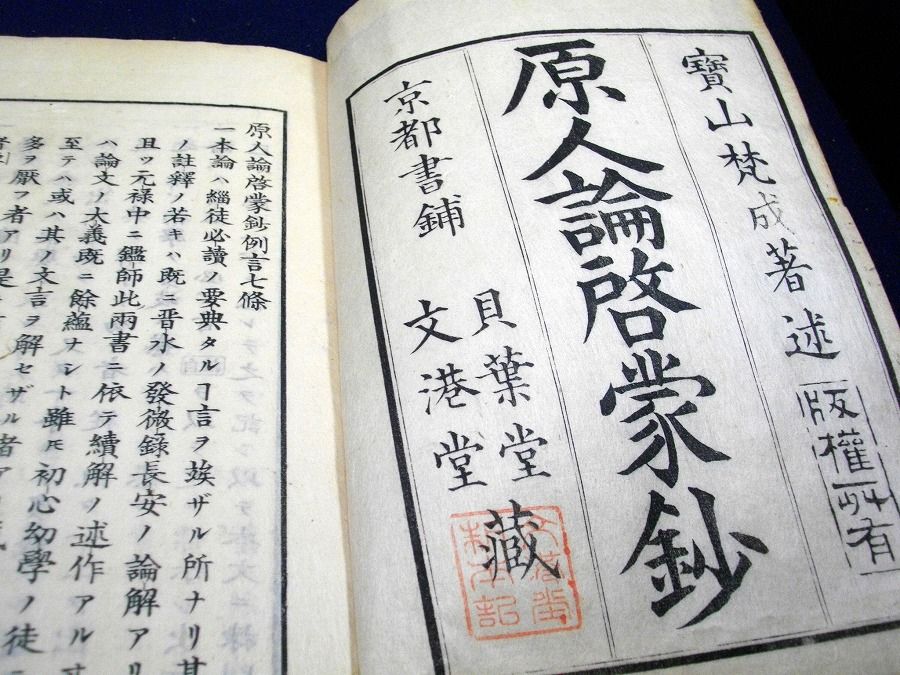 寶山梵成著述
版權所有
原人論啓蒙鈔
京都書鋪
貝葉堂
文港堂
藏
原人論啓蒙鈔例言七條
一本論ハ緇徒必讀ノ要典タルヿ言ヲ俟ザル所ナリ其
ノ註釋ノ若キハ既ニ晋水ノ發微録長安ノ論解アリ
且ッ元禄中ニ鑑師此兩書ニ依テ續解ノ述作アルヿ
ハ論文ノ大義既ニ餘蘊ナシト雖𪜈初心幼學ノ徒ニ
至テハ或ハ其ノ文言ヲ解セザル者ア
多ヲ厭フ者アリ是